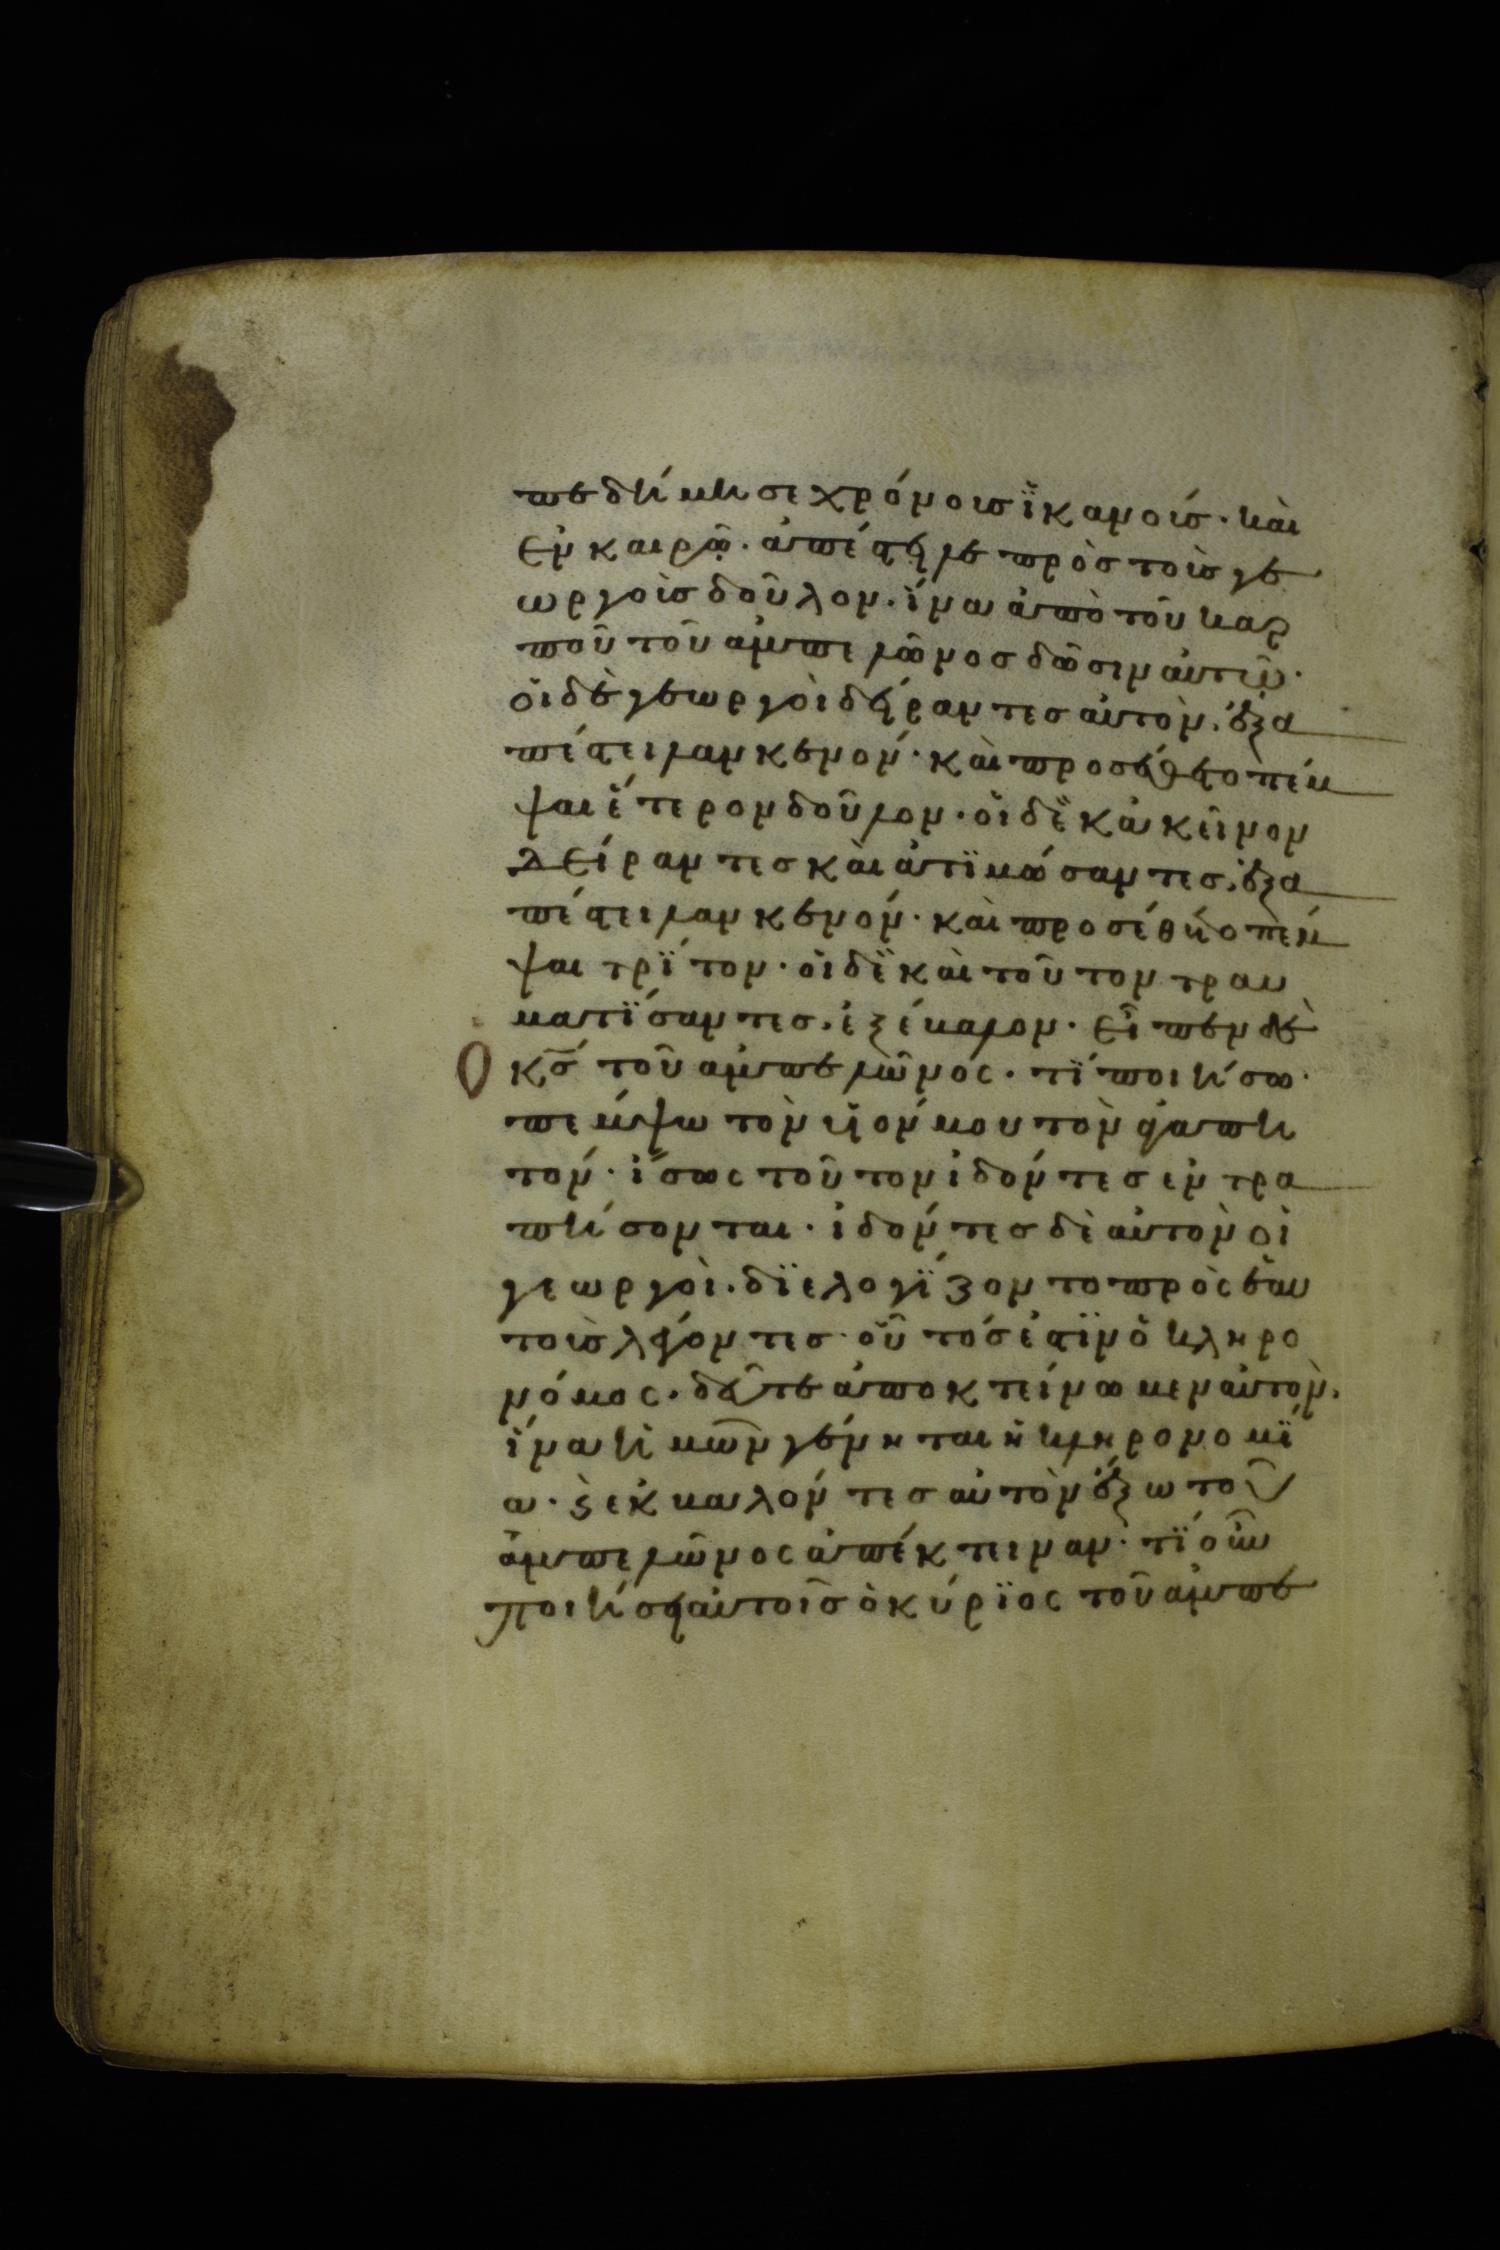 πεδήμησε χρόνοισ ϊκανοίσ· καὶ
ἐν καιρῶ· ἀπέστειλε πρὸσ τοὶσ γε
ωργοὶσ δοῦλον· ἵνα ἀπὸ τοῦ καρ
ποῦ τοῦ ἀμπελῶνοσ δῶσιν αὐτῶ·
ὁι δὲ γεωργοὶ δείραντεσ αὐτὸν, ἐξα
πέστειλαν κενόν· καὶ προσέθετο πέμ
ψαι ἕτερον δοῦλον· ὁι δὲ κἀκεῖνον
δείραντεσ καὶ ἀτϊμάσαντεσ, ἐξα
πέστειλαν κενόν· καὶ προσέθετο πέμ
ψαι τρϊτον· ὁι δὲ καὶ τοῦτον τραυ
ματϊσαντεσ, ἐξέβαλον· εἶπεν δὲ
Ο κ̅σ̅ τοῦ ἀμπελῶνος· τϊ ποιήσω·
πέμψω τὸν ϋἱόν μου τὸν ἀγαπη
τόν· ἴσως τοῦτον ἰδόντεσ ἐντρα
πήσονται· ἰδόντεσ δὲ αὐτὸν οἱ
γεωργοὶ· δϊελογϊζοντο πρὸς ἑαυ
τοὺσ λέγοντεσ· οὗτόσ ἐστϊν ὁ κληρο
νόμος· δεῦτε ἀποκτείνωμεν αὐτὸν,
ἵνα ἡμῶν γένηται ἡ κληρονομϊ
α· ϗ ἐκβαλόντεσ αὐτὸν ἔξω τοῦ
ἀμπελῶνος ἀπέκτειναν· τϊ οὖν
ποιήσει αὐτοῖσ ὁ κύρϊος τοῦ ἀμπε